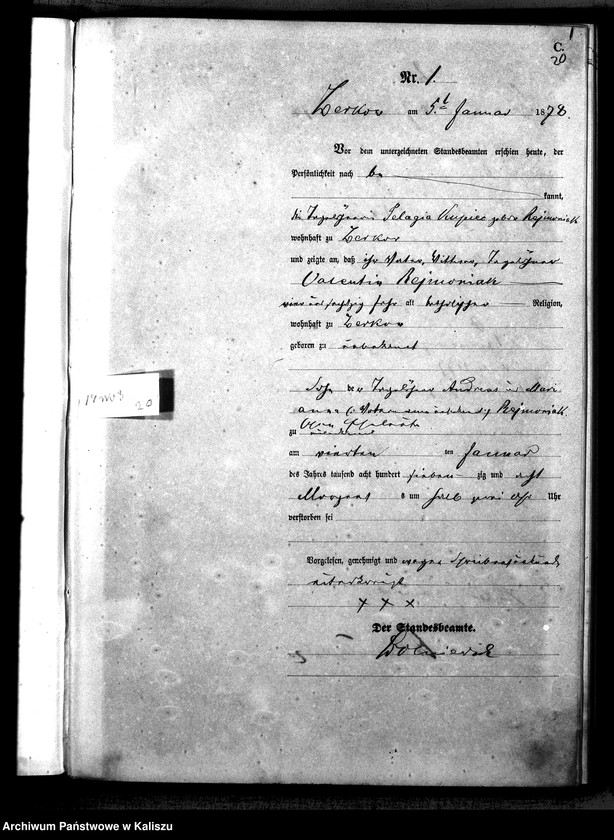 1
C.
20
Nr. 1.
Zerkow am 5t Januar 1878.
Vor dem unterzeichneten Standesbeamten erschien heute, der
Persönlichkeit nach be
kannt,
die Tagelöhnerin Pelagia Kupiec geborne Rejmoniak
wohnhaft zu Zerkow
und zeigte an, daß ihr Vater, Wittwer, Tagelöhner
Valentin Rejmoniak
vier und sechszig Jahr alt katholischer Religion,
wohnhaft zu Zerkow
geboren zu unbekannt
Sohn der Tagelöhner Andreas und Mari
anna Rejmoniak
zu
am vierten ten Januar
des Jahres tausend acht hundert sieben zig und acht
Morgens um halb zwei Uhr
verstorben sei
Vorgelesen, genehmigt und wegen
unterkreuzt
x x x
Der Standesbeamte.
20
Archiwum Państwowe w Kaliszu